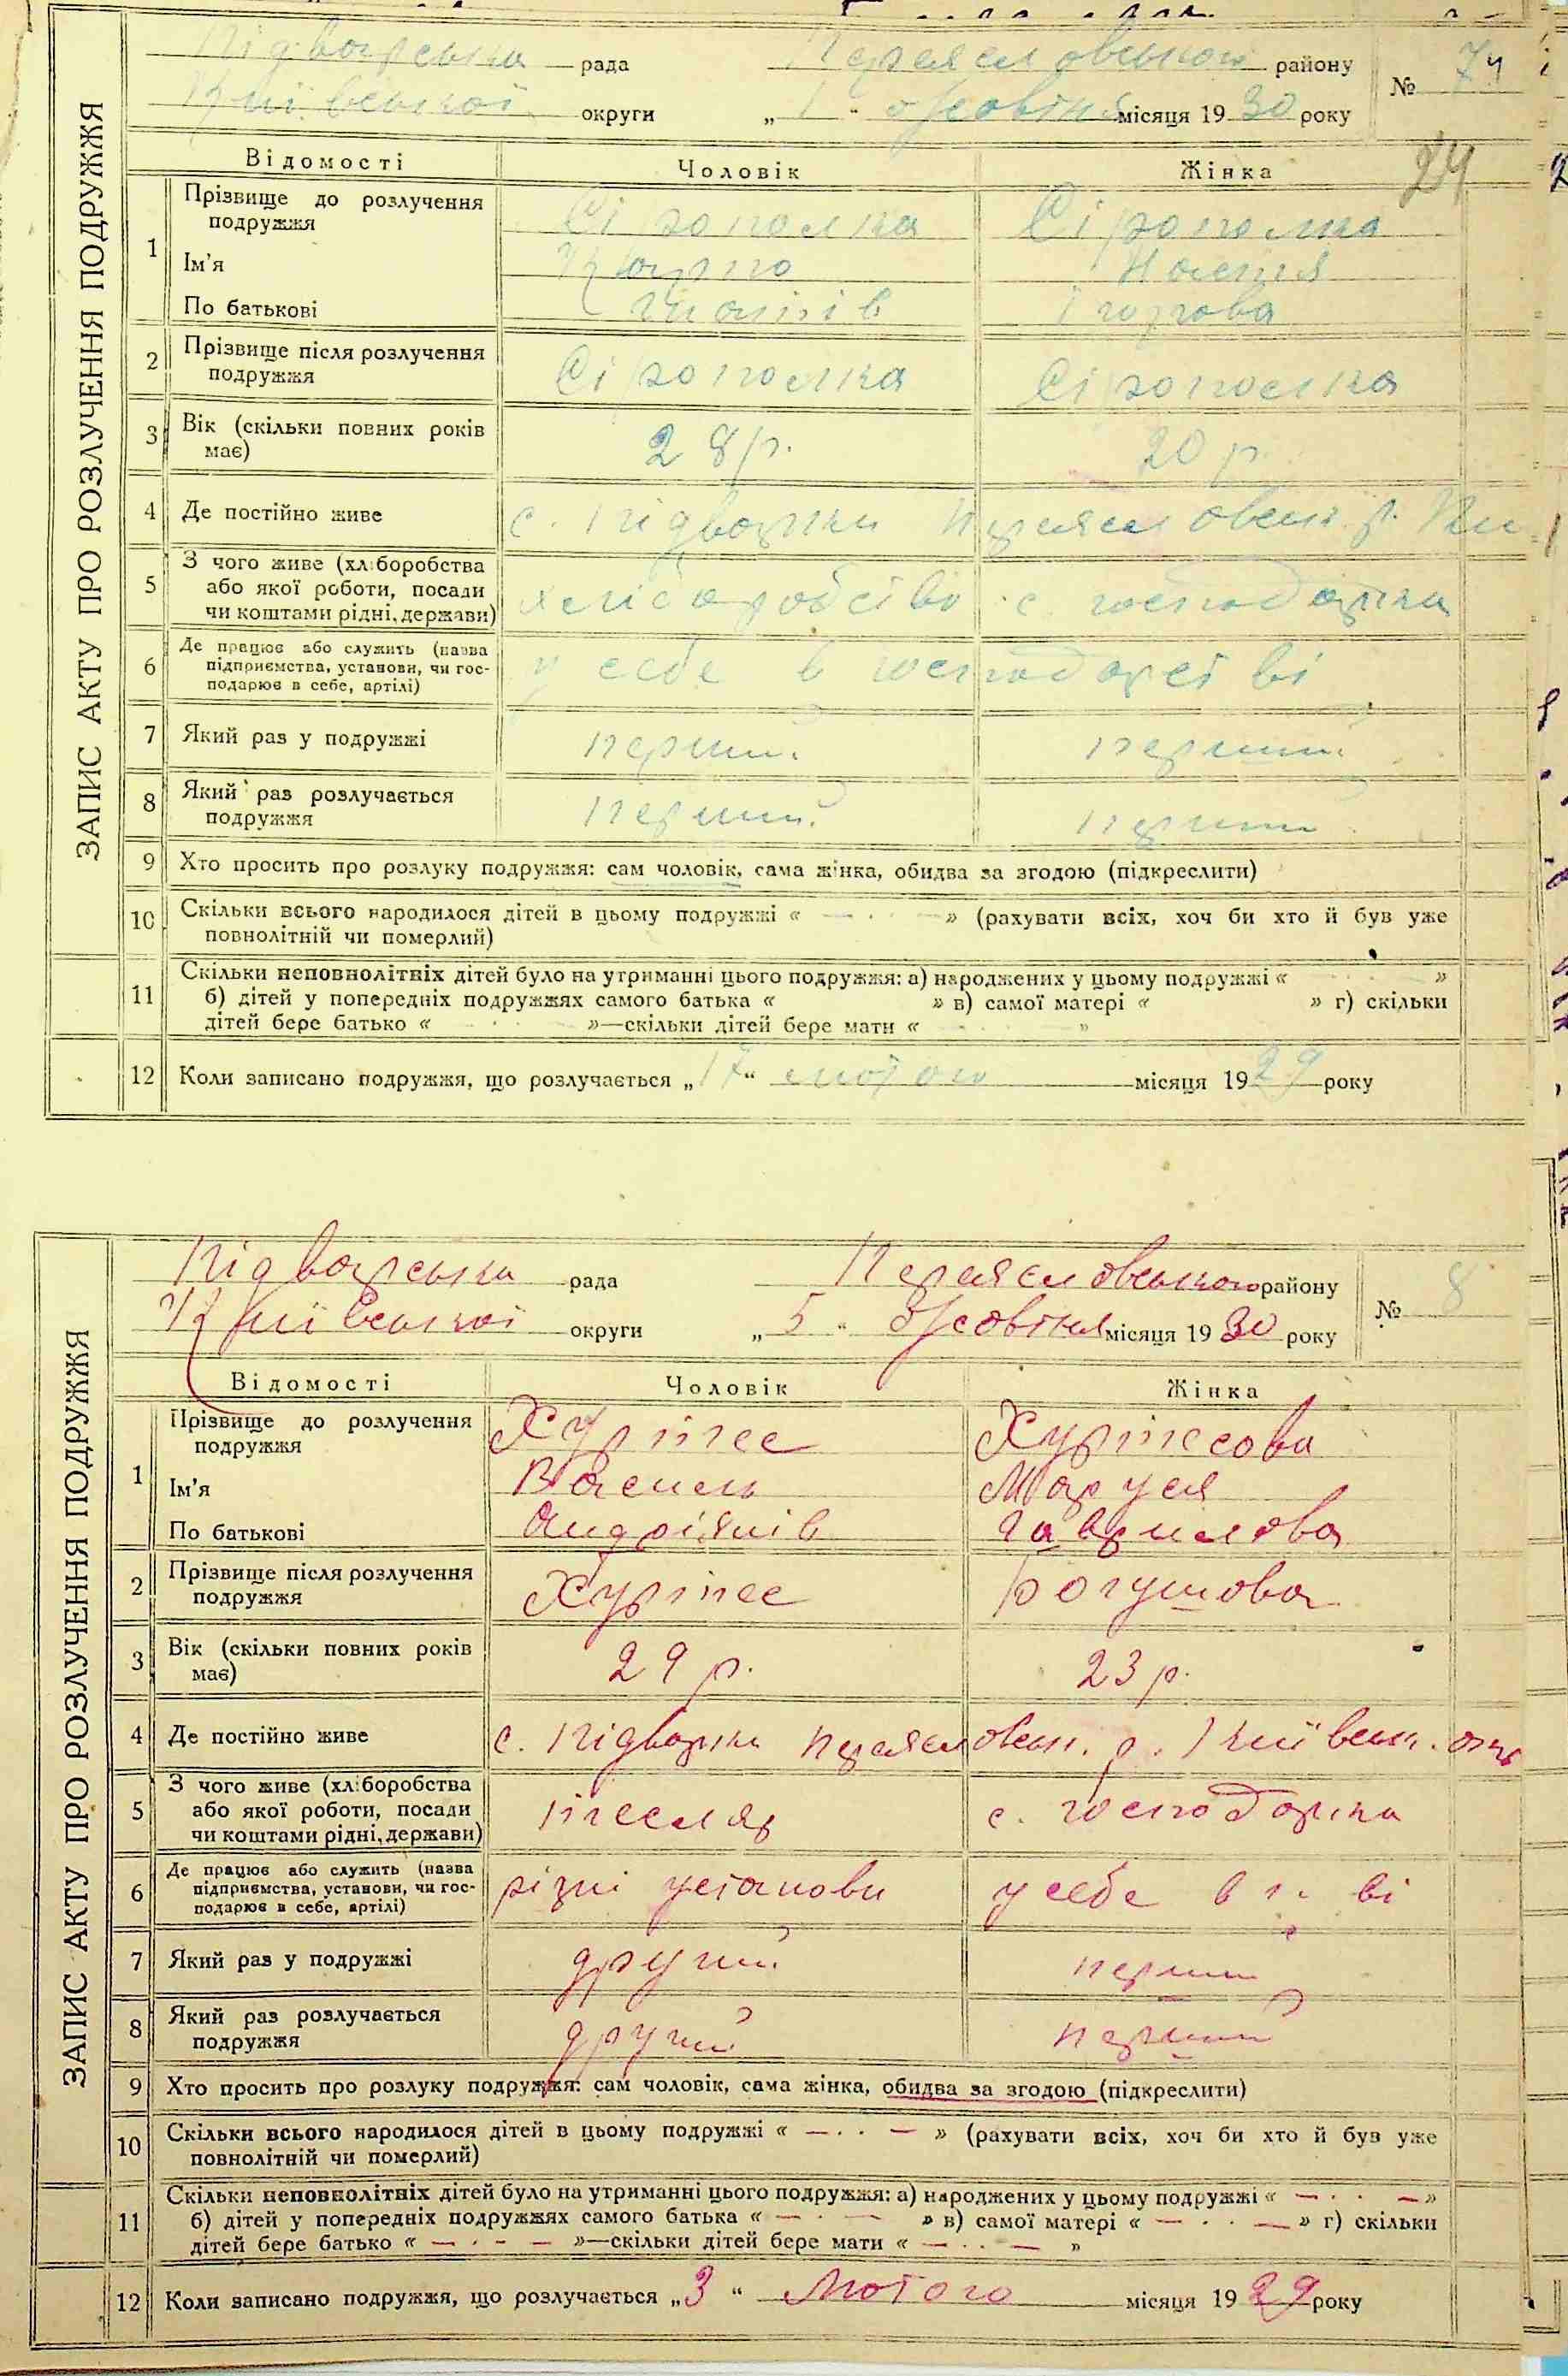 ЗАПИС АКТУ ПРО РОЗЛУЧЕННЯ ПОДРУЖЖЯ
Підварська рада Переяславського району
Київської округи „ 1 “ жовтня місяця 1930 року
№ 7
24
Відомості Чоловік Жінка
1 Прізвище до розлучення подружжя Сірополка Сірополка
Ім'я Карпо Настя
По батькові
2 Прізвище після розлучення подружжя Сірополка Сірополка
3 Вік (скільки повних років має) 28 р. 20 р.
4 Де постійно живе с. Підварки Переяславськ. р. Ки
5 З чого живе (хліборобства
або якої роботи, посади
чи коштами рідні, держави) хліборобство с. господарка
6 Де працює або служить (назва
підприємства, установи, чи гос-
подарює в себе, артілі) у себе в господарстві
7 Який раз у подружжі перший перший
8 Який раз розлучається
подружжя перший перший
9 Хто просить про розлуку подружжя: сам чоловік, сама жінка, обидва за згодою (підкреслити)
10 Скільки всього народилося дітей в цьому подружжі « — · · — » (рахувати всіх, хоч би хто й був уже
повнолітній чи померлий)
11 Скільки неповнолітніх дітей було на утриманні цього подружжя: а) народжених у цьому подружжі « »
б) дітей у попередніх подружжях самого батька « » в) самої матері « » г) скільки
дітей бере батько « »—скільки дітей бере мати « »
12 Коли записано подружжя, що розлучається „ 17 “ лютого місяця 1929 року
ЗАПИС АКТУ ПРО РОЗЛУЧЕННЯ ПОДРУЖЖЯ
Підварська рада Переяславського району
Київської округи „ 5 “ жовтня місяця 1930 року
№ 8
Відомості Чоловік Жінка
1 Прізвище до розлучення
подружжя Хурпіса Хурпісова
Ім'я Василь Маруся
По батькові Андріянів Гаврилова
2 Прізвище після розлучення
подружжя Хурпіса Богушова
3 Вік (скільки повних років
має) 29 р. 23 р.
4 Де постійно живе с. Підварки Переяславськ. р. Київськ. окр
5 З чого живе (хліборобства
або якої роботи, посади
чи коштами рідні, держави) тесляр с. господарка
6 Де працює або служить (назва
підприємства, установи, чи гос-
подарює в себе, артілі) різні установи у себе в г. ві
7 Який раз у подружжі другий перший
8 Який раз розлучається
подружжя другий перший
9 Хто просить про розлуку подружжя: сам чоловік, сама жінка, обидва за згодою (підкреслити)
10 Скільки всього народилося дітей в цьому подружжі « — · · — » (рахувати всіх, хоч би хто й був уже
повнолітній чи померлий)
11 Скільки неповнолітніх дітей було на утриманні цього подружжя: а) народжених у цьому подружжі « — · · — »
б) дітей у попередніх подружжях самого батька « — · — » в) самої матері « — · · — » г) скільки
дітей бере батько « — · - — »—скільки дітей бере мати « — · · — »
12 Коли записано подружжя, що розлучається „ 3 “ Лютого місяця 1929 року